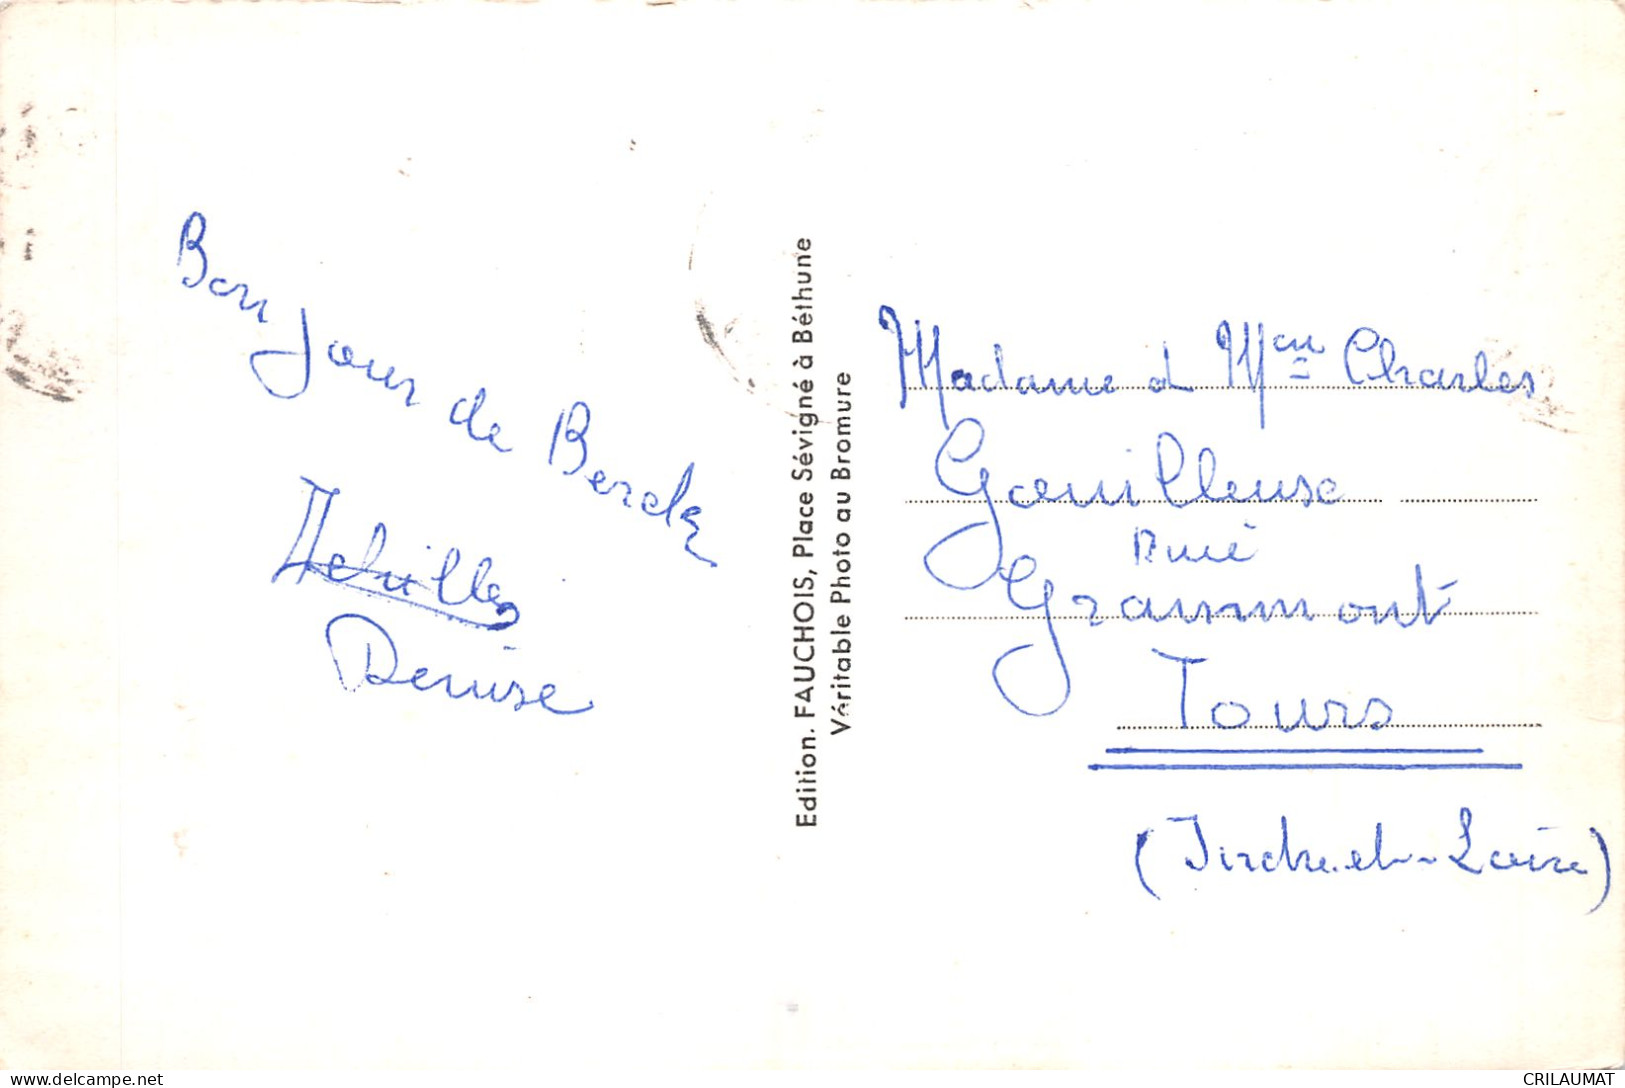 Bon jour de Berck
Achille
Denise
Edition. FAUCHOIS, Place Sévigné à Béthune
Véritable Photo au Bromure
Madame et Charles
Rue
Grammont
Tours
(Indre-et-Loire)
delcampe.net
CRILAUMAT